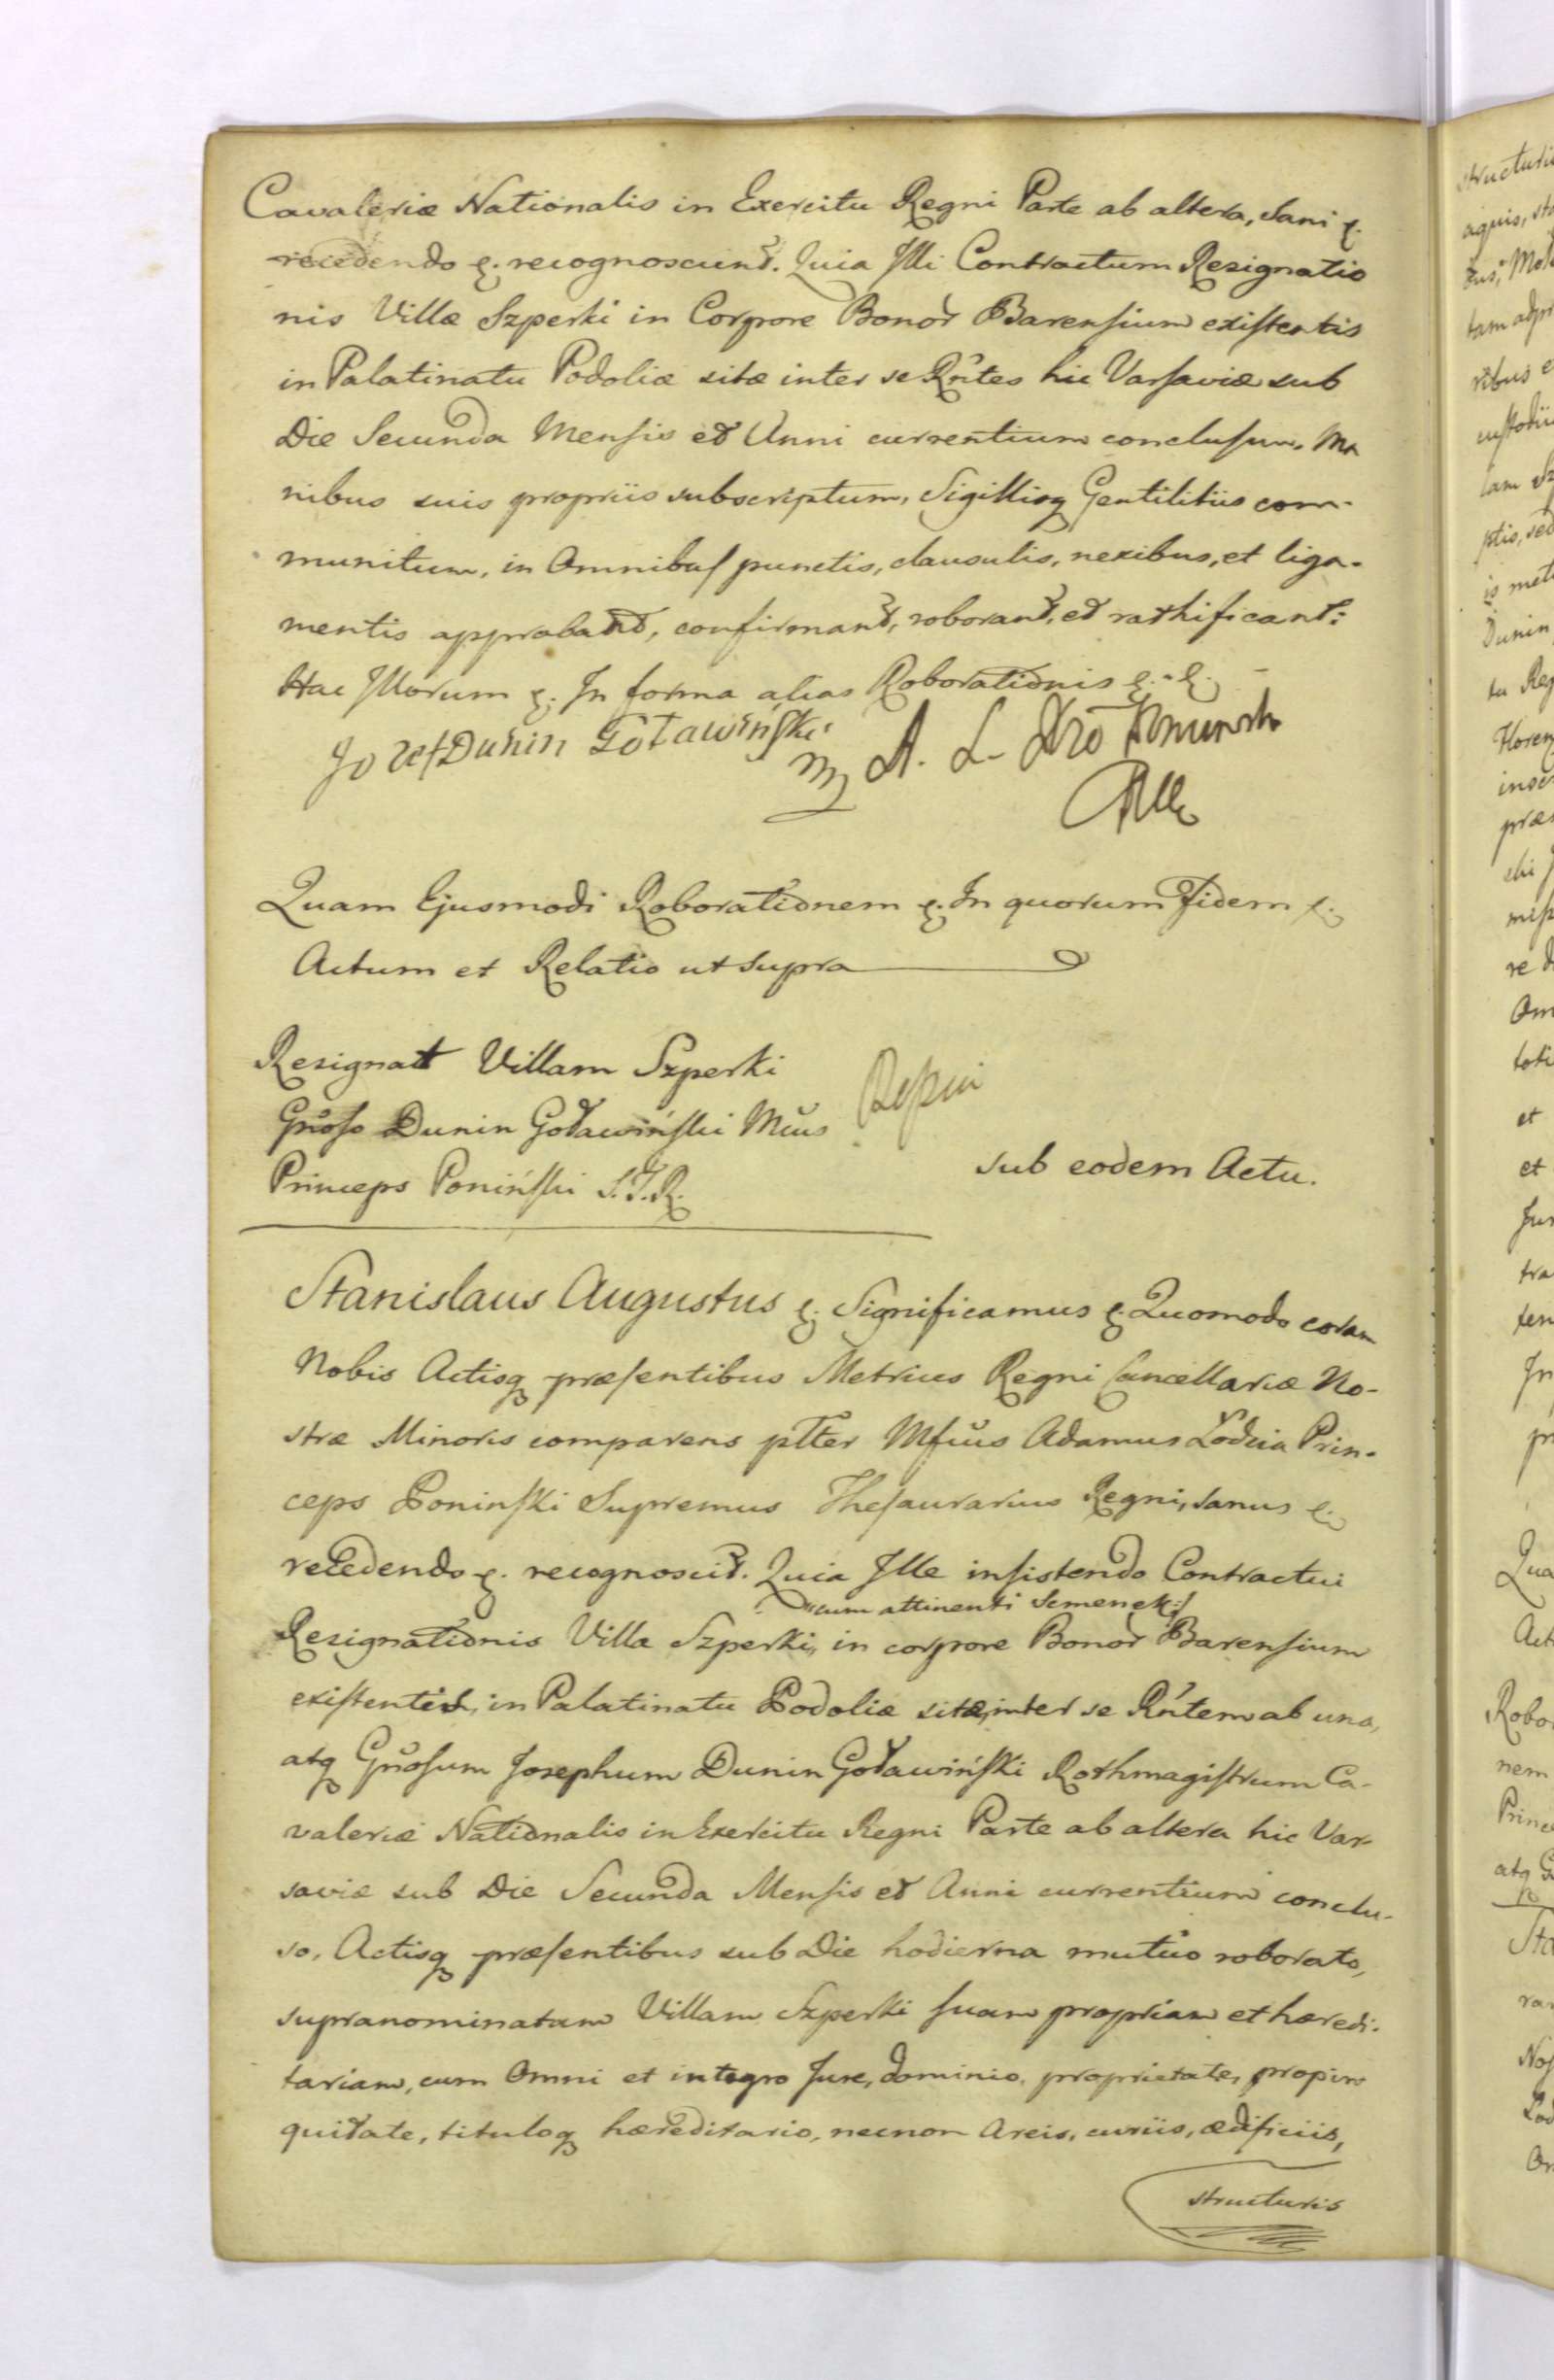 Cavaleriæ Nationalis in Exercitu Regni Parte ab altera, Sani &.
recedendo &. recognoscunt. Quia Illi Contractum Resignatio
nis Villæ Szperki in Corpore Bonor Barensium existentis
in Palatinatu Podoliæ sitæ inter se Rñtes hic Varsaviæ sub
Die Secunda Mensis et Anni currentium conclusum, Ma
nibus suis propriis subscriptum, Sigillisq Gentilitiis com-
munitum, in Omnibus punctis, clausulis, nexibus, et liga-
mentis approbant, confirmant, roborant, et rathificant:
Hac Illorum &. In forma alias Roborationis &. &.
Jozef Dunin Goławiński
mp A. L.
Quam Ejusmodi Roborationem &. In quorum Fidem &.
Actum et Relatio ut supra
Resignat Villam Szperki
Gñoso Dunin Goławiński Mcus
Princeps Poniński S.T.R.
sub eodem Actu.
Stanislaus Augustus &. Significamus &. Quomodo coram
Nobis Actisq præsentibus Metrices Regni Cancellariæ No-
stræ Minoris comparens pltter Mfcus Adamus Łodzia Prin-
ceps Poninski Supremus Thesaurarius Regni, sanus &.
recedendo &. recognoscit. Quia Ille insistendo Contractui
cum attinenti Semenek
Resignationis Villa Szperki, in corpore Bonor Barensium
existentis, in Palatinatu Podoliæ sitæ, inter se Rñtem ab una,
atq Gñosum Josephum Dunin Goławiński Rothmagistrum Ca-
valeriæ Nationalis in Exercitu Regni Parte ab altera hic Var-
saviæ sub Die Secunda Mensis et Anni currentium conclu-
so, Actisq præsentibus sub Die hodierna mutuo roborato,
supranominatam Villam Szperki suam propriam et hæredi-
tariam, cum Omni et integro Jure, dominio, proprietate, propin
quitate, tituloq hæreditario, necnon Areis, curiis, ædificiis,
structuris